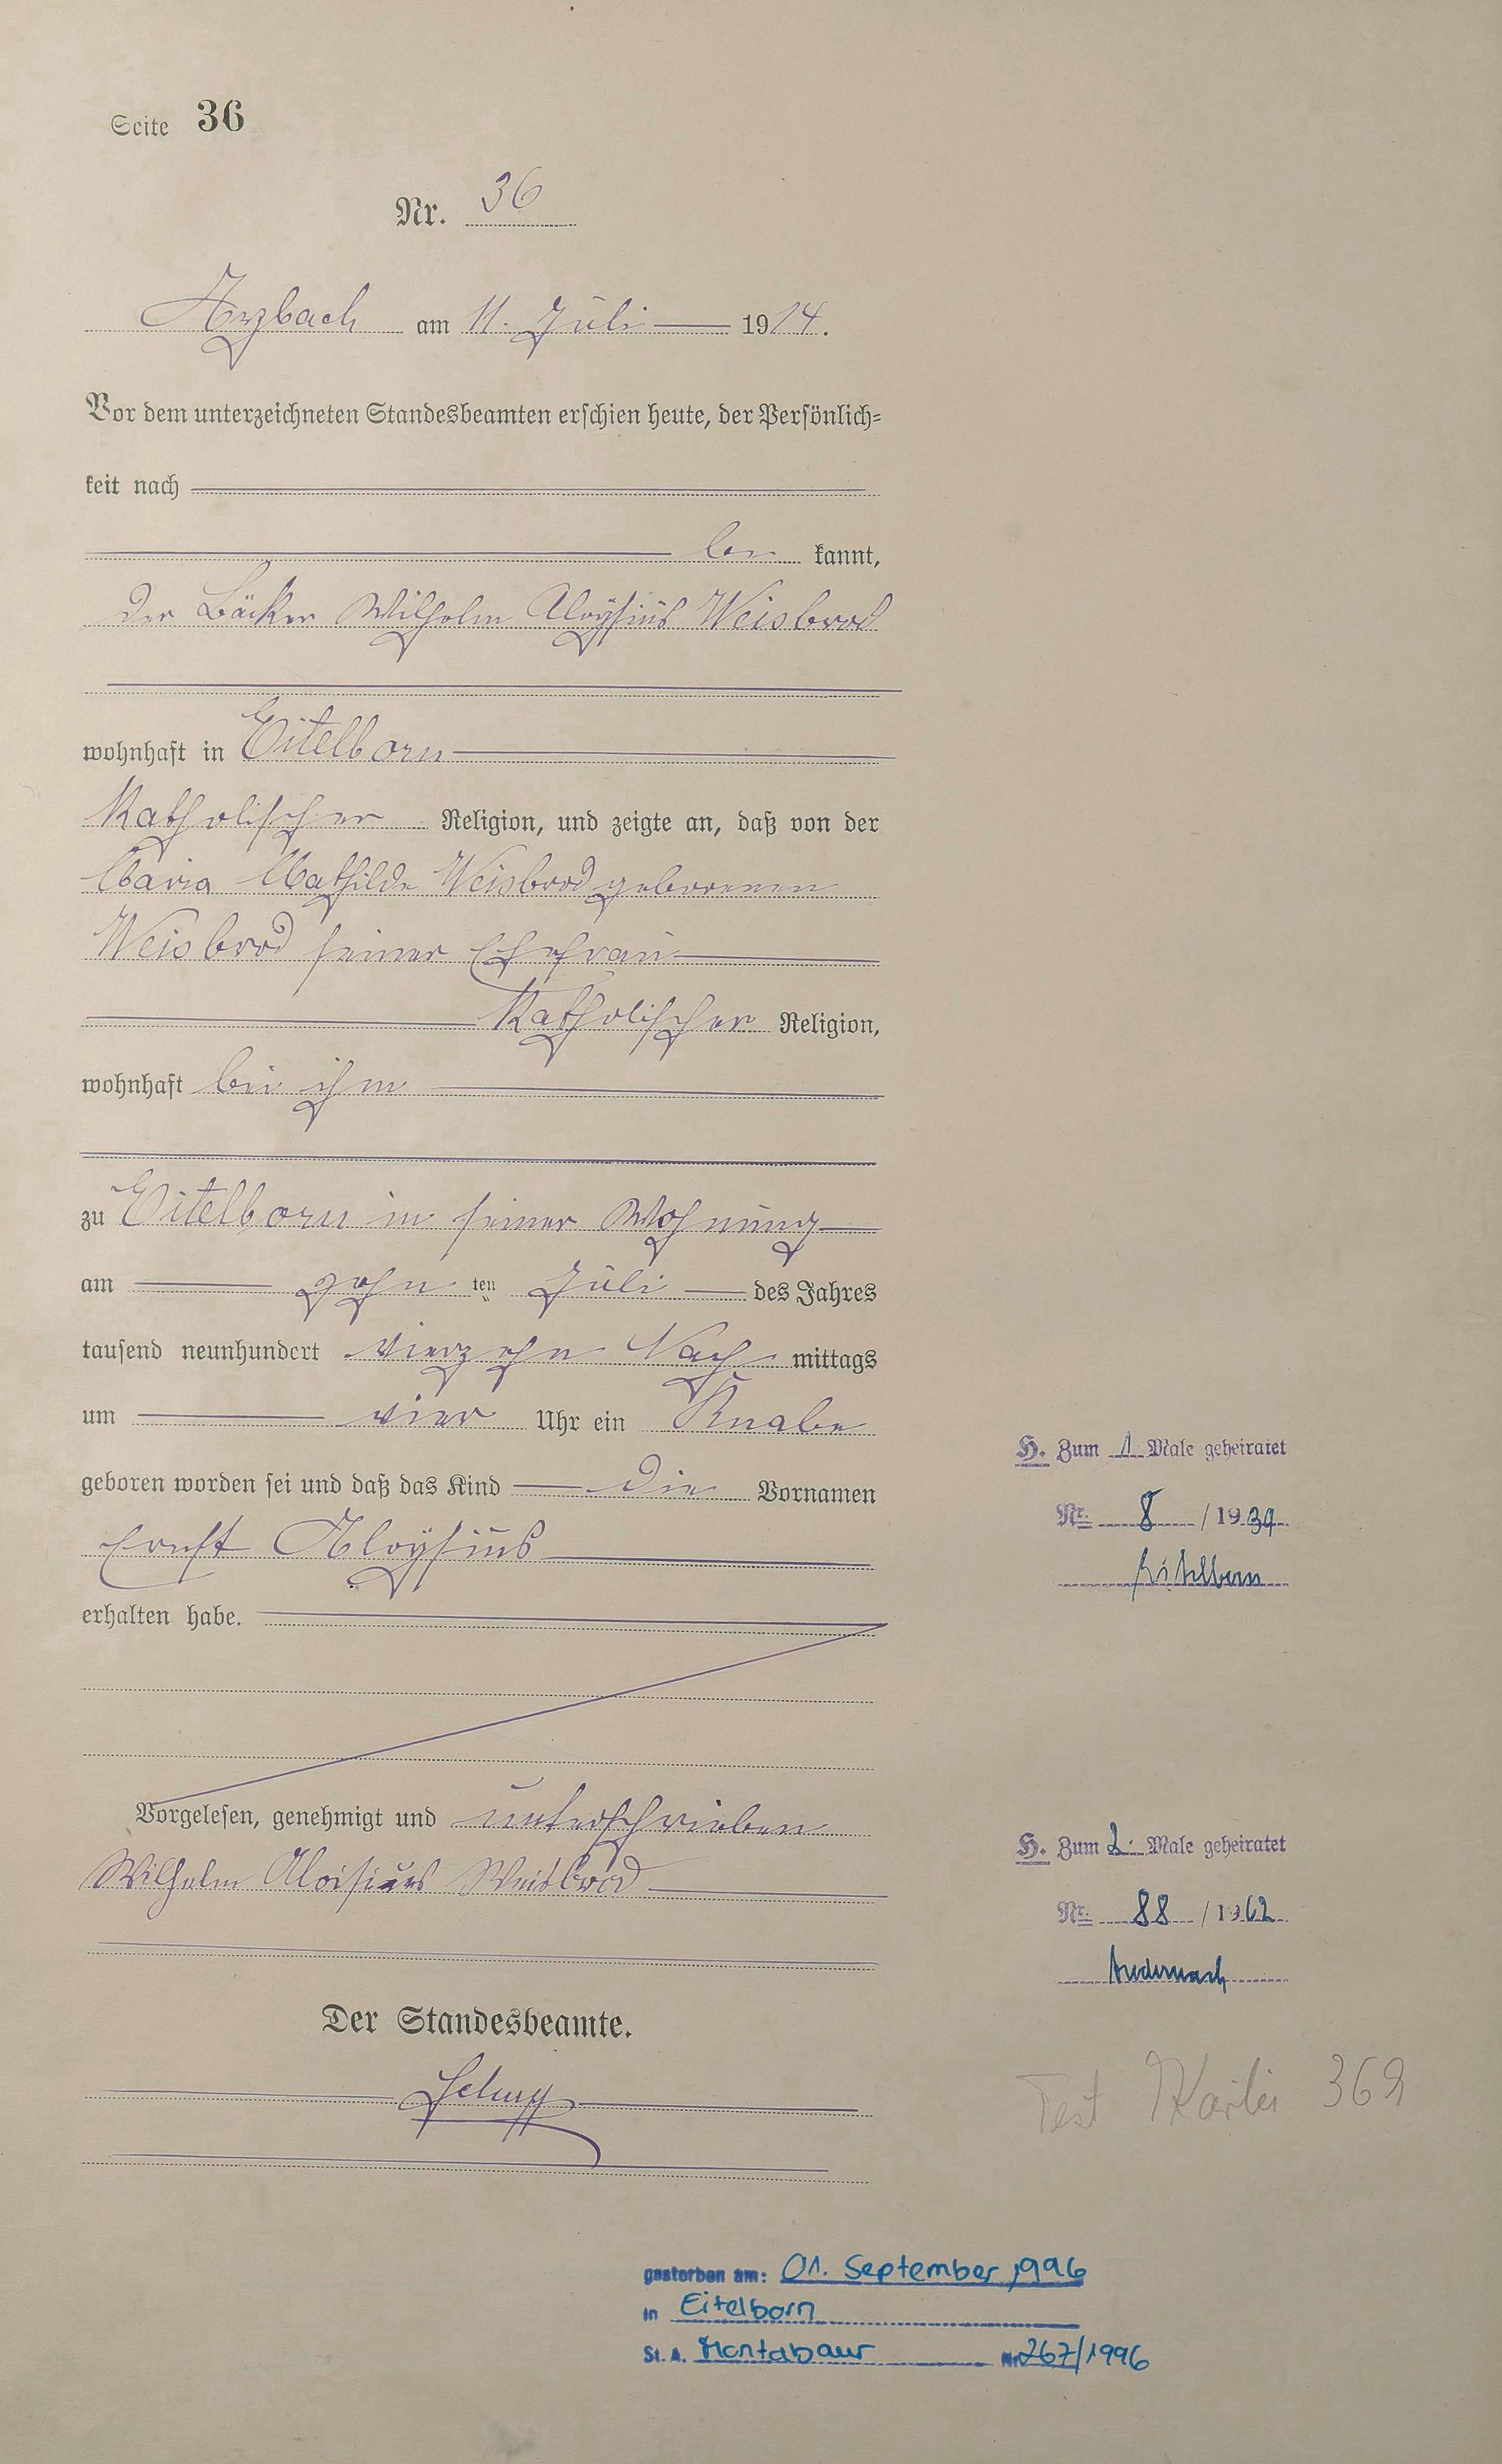 Seite 36
Nr. 36
Arzbach am 11. Juli 1914.
Vor dem unterzeichneten Standesbeamten erschien heute, der Persönlich=
keit nach
be kannt,
der Bäcker Wilhelm Aloysius Weisbrod
wohnhaft in Eitelborn
Katholischer Religion, und zeigte an, daß von der
Maria Mathilde Weisbrod geborenen
Weisbrod seiner Ehefrau
Katholischer Religion,
wohnhaft bei ihm
zu Eitelborn in seiner Wohnung
am zehn ten Juli des Jahres
tausend neunhundert vierzehn Nach mittags
um vier Uhr ein Knabe
geboren worden sei und daß das Kind die Vornamen
Ernst Aloysius
erhalten habe.
Vorgelesen, genehmigt und unterschrieben
Wilhelm Aloisius Weisbrod
Der Standesbeamte.
H. Zum 1. Male geheiratet
Nr. 8 / 1939
Eitelborn
H. Zum 2. Male geheiratet
Nr. 88 / 1962
Andernach
Test Kartei 369
gestorben am: 01. September 1996
in Eitelborn
St. A. Montabaur Nr. 267/1996